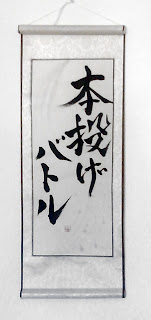 本投げ
バトル